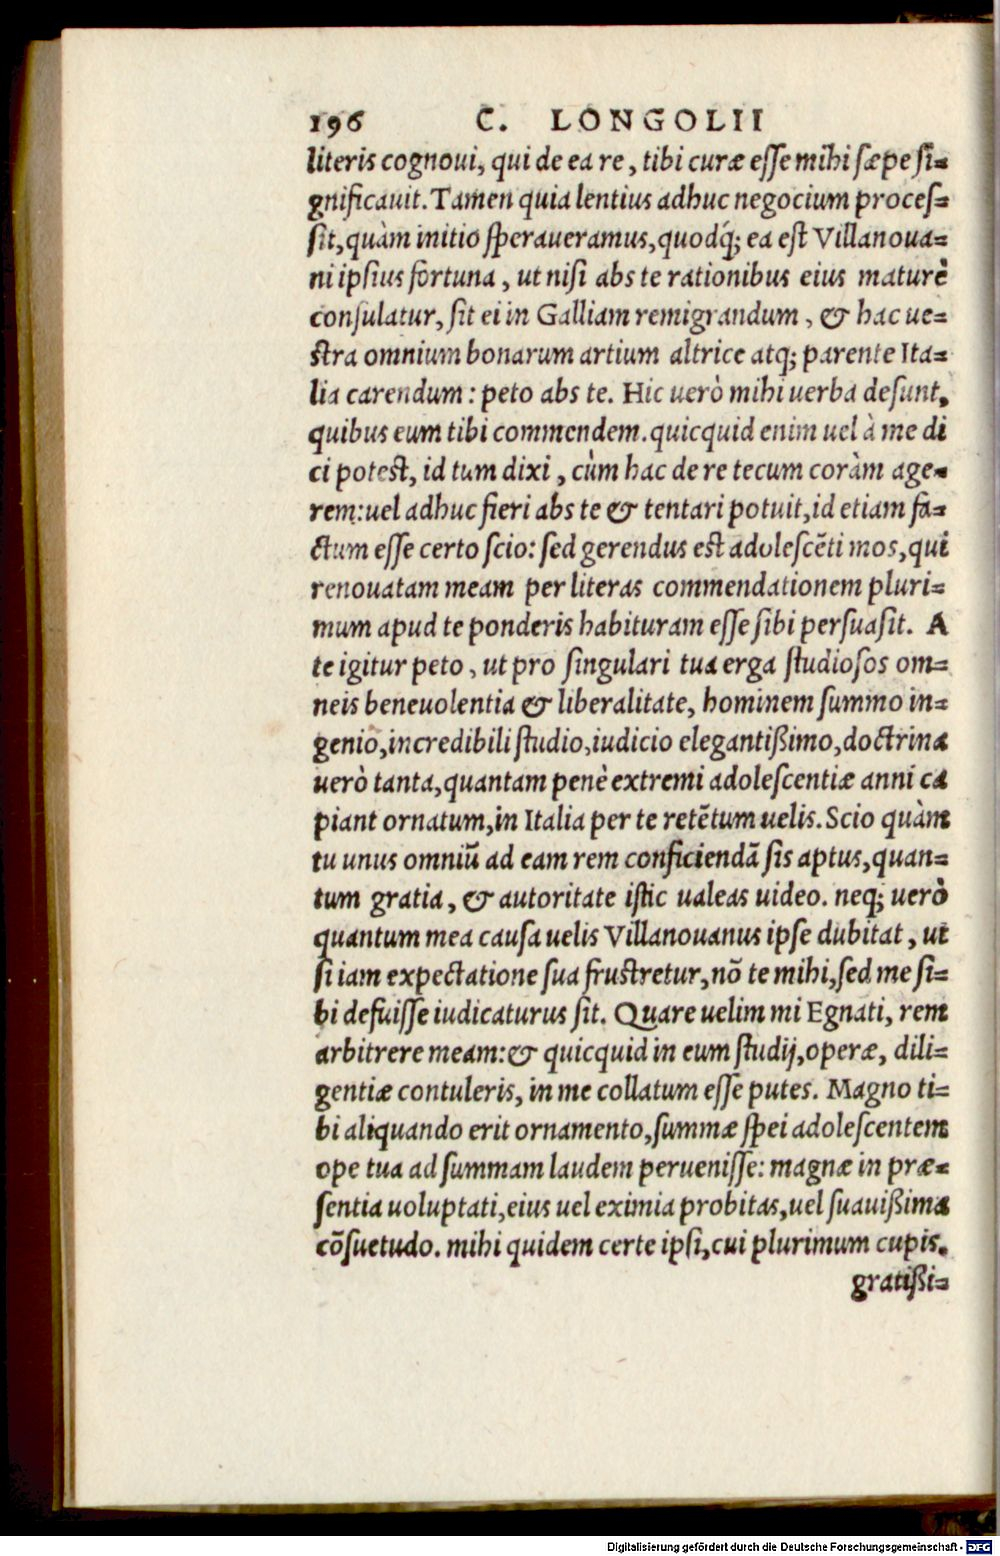 196 C. LONGOLII
literis cognoui, qui de ea re, tibi curæ esse mihi sæpe si=
gnificauit. Tamen quia lentius adhuc negocium proces=
sit, quàm initio speraueramus, quodq́; ea est Villanoua=
ni ipsius fortuna, ut nisi abs te rationibus eius maturè
consulatur, sit ei in Galliam remigrandum, & hac ue=
stra omnium bonarum artium altrice atq; parente Ita=
lia carendum: peto abs te. Hic uerò mihi uerba desunt,
quibus eum tibi commendem. quicquid enim uel à me di
ci potest, id tum dixi, cùm hac de re tecum coràm age=
rem: uel adhuc fieri abs te & tentari potuit, id etiam fa=
ctum esse certo scio: sed gerendus est adolescẽti mos, qui
renouatam meam per literas commendationem pluri=
mum apud te ponderis habituram esse sibi persuasit. A
te igitur peto, ut pro singulari tua erga studiosos om=
neis beneuolentia & liberalitate, hominem summo in=
genio, incredibili studio, iudicio elegantißimo, doctrina
uerò tanta, quantam penè extremi adolescentiæ anni ca
piant ornatum, in Italia per te retẽtum uelis. Scio quàm
tu unus omniũ ad eam rem conficiendã sis aptus, quan=
tum gratia, & autoritate istic ualeas uideo. neq; uerò
quantum mea causa uelis Villanouanus ipse dubitat, ut
si iam expectatione sua frustretur, nõ te mihi, sed me si=
bi defuisse iudicaturus sit. Quare uelim mi Egnati, rem
arbitrere meam: & quicquid in eum studij, operæ, dili=
gentiæ contuleris, in me collatum esse putes. Magno ti=
bi aliquando erit ornamento, summæ spei adolescentem
ope tua ad summam laudem peruenisse: magnæ in præ=
sentia uoluptati, eius uel eximia probitas, uel suauißima
cõsuetudo. mihi quidem certe ipsi, cui plurimum cupis,
gratißi=
Digitalisierung gefördert durch die Deutsche Forschungsgemeinschaft - DFG